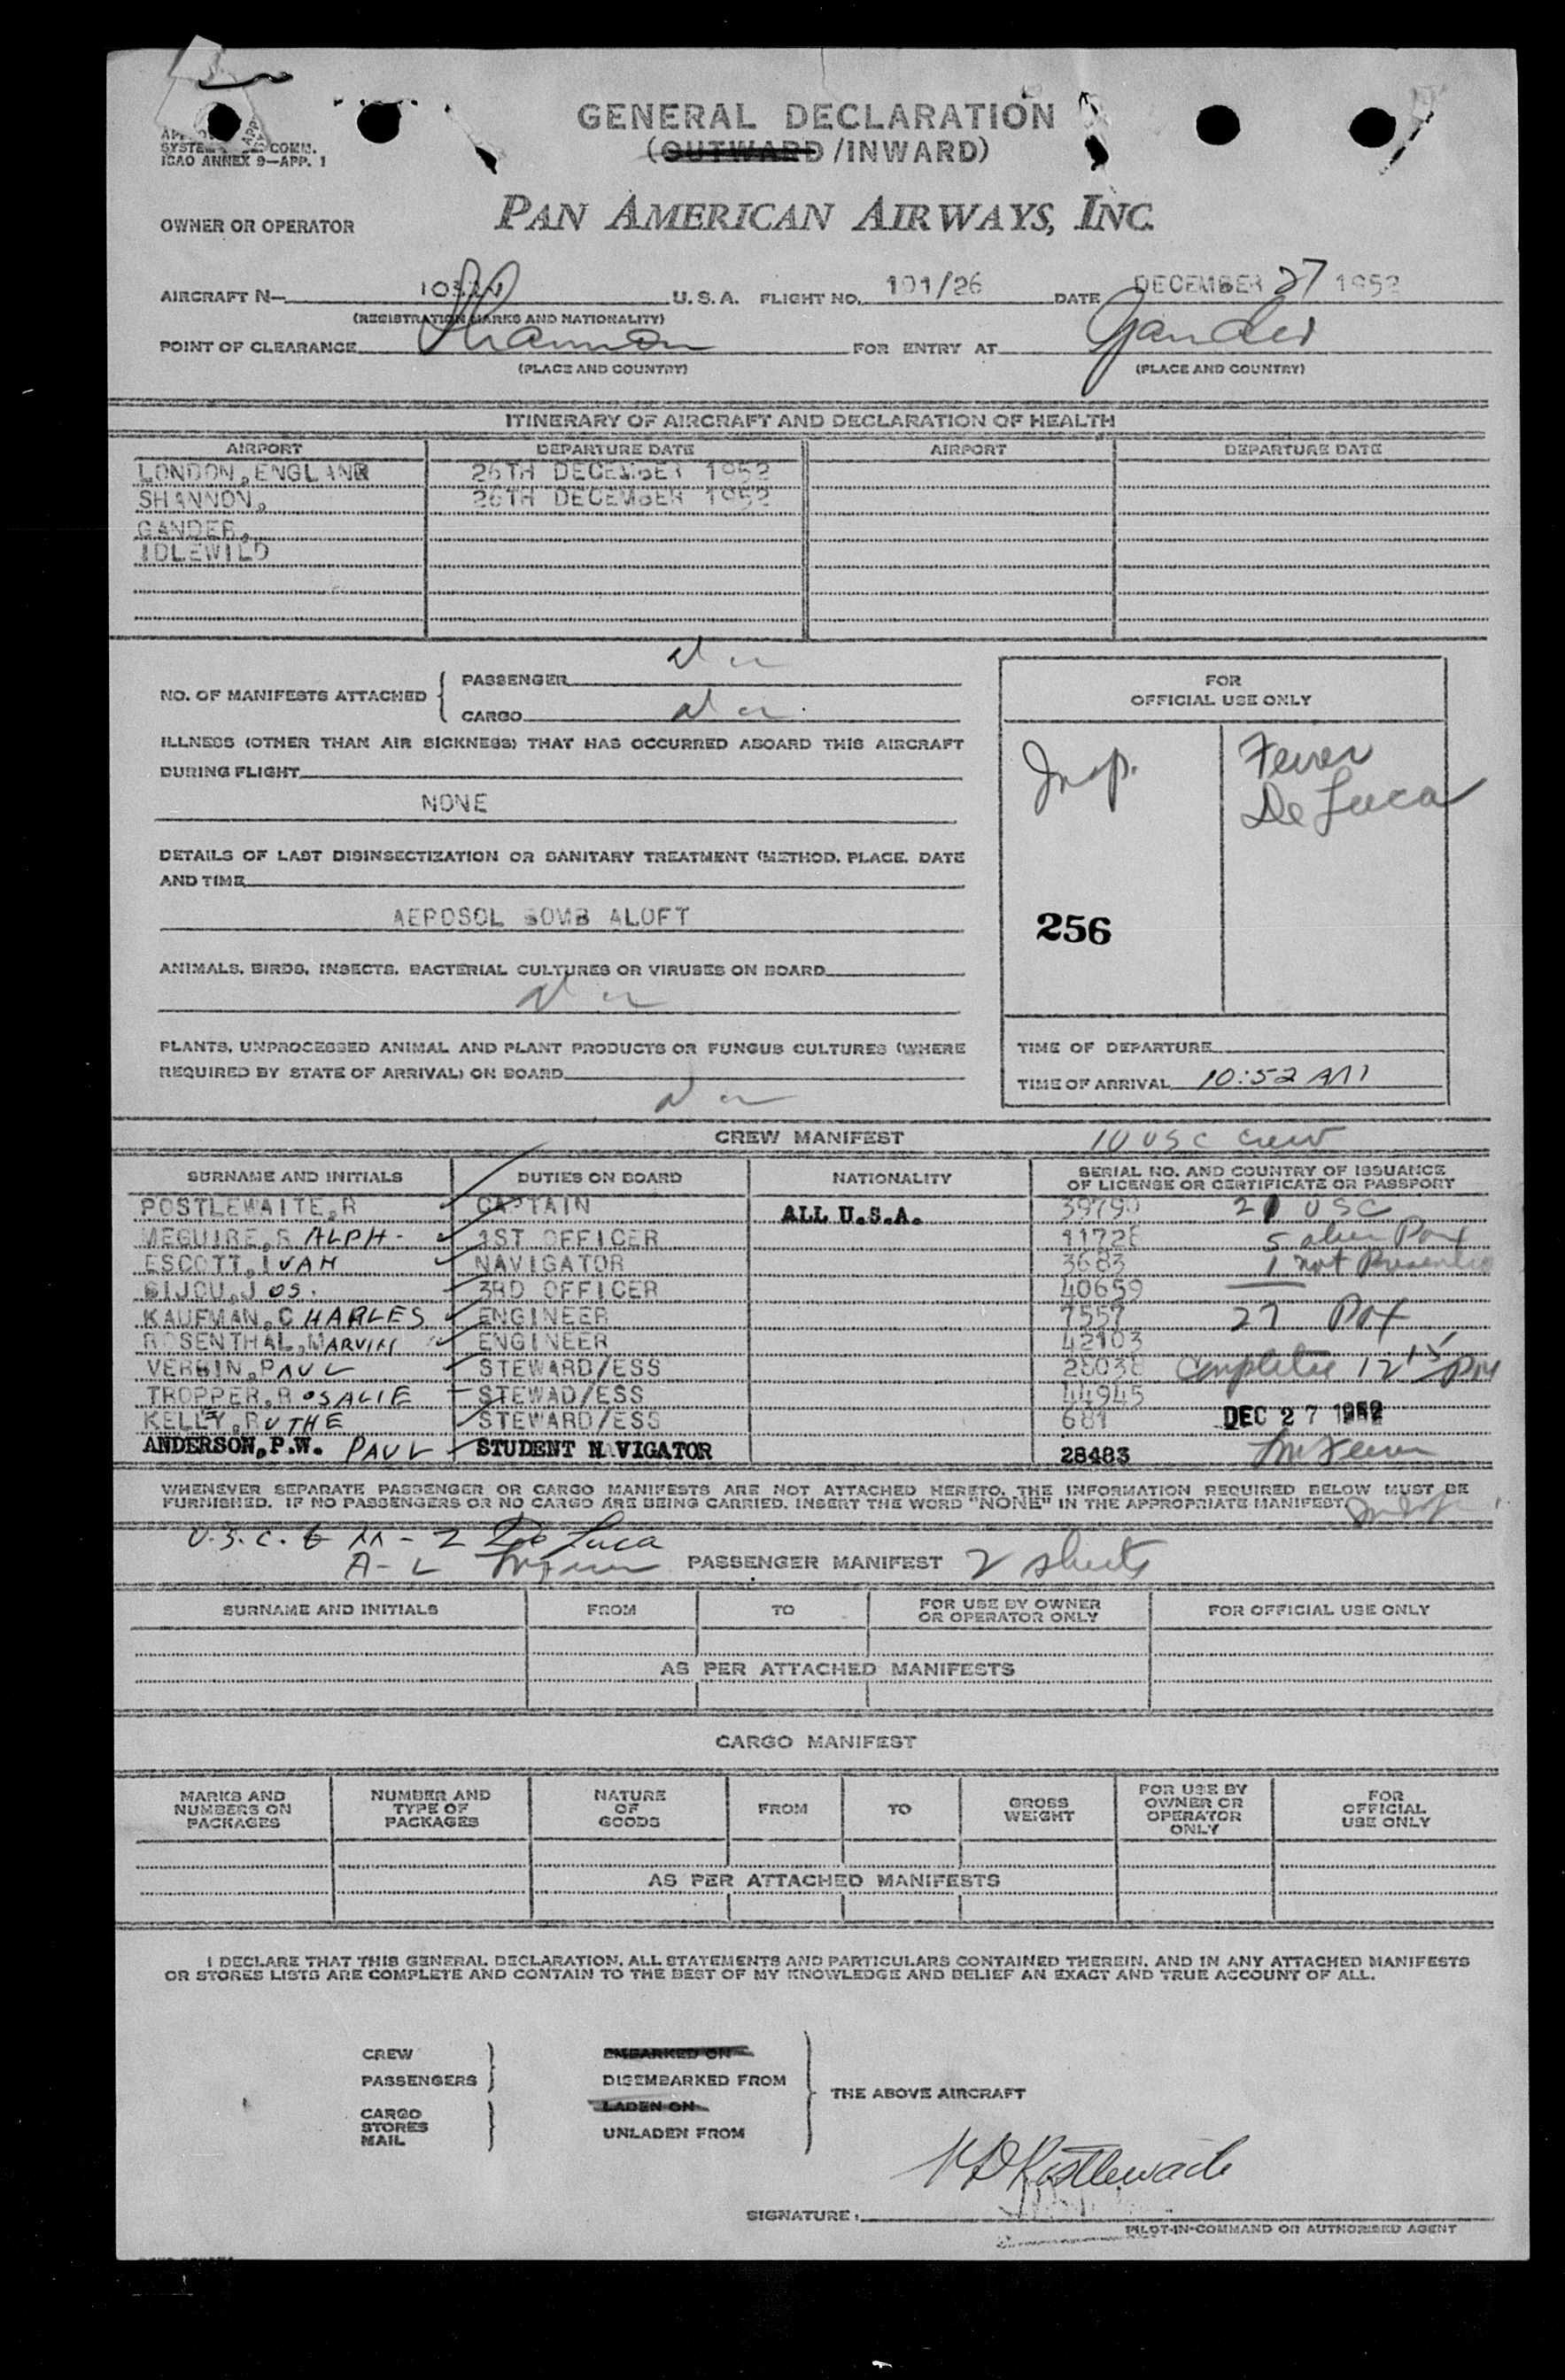 GENERAL DECLARATION
(OUTWARD/INWARD)
SYSTE COMM.
ICAO ANNEX 9—APP. 1
OWNER OR OPERATOR PAN AMERICAN AIRWAYS, INC.
AIRCRAFT N— U.S.A. FLIGHT NO. 101/26 DATE DECEMBER 27 1952
(REGISTRATION MARKS AND NATIONALITY)
POINT OF CLEARANCE Shannon FOR ENTRY AT Gander
(PLACE AND COUNTRY) (PLACE AND COUNTRY)
ITINERARY OF AIRCRAFT AND DECLARATION OF HEALTH
AIRPORT DEPARTURE DATE AIRPORT DEPARTURE DATE
LONDON, ENGLAND 26TH DECEMBER 1952
SHANNON, 26TH DECEMBER 1952
GANDER,
IDLEWILD
NO. OF MANIFESTS ATTACHED
PASSENGER
CARGO
FOR
OFFICIAL USE ONLY
ILLNESS (OTHER THAN AIR SICKNESS) THAT HAS OCCURRED ABOARD THIS AIRCRAFT
DURING FLIGHT
NONE
Insp.
De Luca
DETAILS OF LAST DISINSECTIZATION OR SANITARY TREATMENT (METHOD, PLACE, DATE
AND TIME
AEROSOL BOMB ALOFT
256
ANIMALS, BIRDS, INSECTS, BACTERIAL CULTURES OR VIRUSES ON BOARD
PLANTS, UNPROCESSED ANIMAL AND PLANT PRODUCTS OR FUNGUS CULTURES (WHERE
REQUIRED BY STATE OF ARRIVAL) ON BOARD
TIME OF DEPARTURE
TIME OF ARRIVAL 10:52 AM
CREW MANIFEST 10 USC Crew
SURNAME AND INITIALS DUTIES ON BOARD NATIONALITY SERIAL NO. AND COUNTRY OF ISSUANCE
OF LICENSE OR CERTIFICATE OR PASSPORT
POSTLEWAITE, R CAPTAIN ALL U.S.A. 39790 21 USC
MEGUIRE, RALPH- 1ST OFFICER 11728 5 alien Pax
ESCOTT, IVAN NAVIGATOR 3683 1 not Presented
BIJOU, JOS. 3RD OFFICER 40659
KAUFMAN, CHARLES ENGINEER 7557 27 Pax
ROSENTHAL, MARVIN ENGINEER 42103
VERBIN, PAUL STEWARD/ESS 28038 Completed 12 15 PM
TROPPER, ROSALIE STEWAD/ESS 44945
KELLY, RUTHE STEWARD/ESS 681 DEC 27 1952
ANDERSON, P.W. PAUL STUDENT NAVIGATOR 28483
WHENEVER SEPARATE PASSENGER OR CARGO MANIFESTS ARE NOT ATTACHED HERETO, THE INFORMATION REQUIRED BELOW MUST BE
FURNISHED. IF NO PASSENGERS OR NO CARGO ARE BEING CARRIED, INSERT THE WORD "NONE" IN THE APPROPRIATE MANIFEST.
U.S.C. & M-Z De Luca
A-L PASSENGER MANIFEST 2 sheets
SURNAME AND INITIALS FROM TO FOR USE BY OWNER
OR OPERATOR ONLY FOR OFFICIAL USE ONLY
AS PER ATTACHED MANIFESTS
CARGO MANIFEST
MARKS AND
NUMBERS ON
PACKAGES
NUMBER AND
TYPE OF
PACKAGES
NATURE
OF
GOODS
FROM
TO
GROSS
WEIGHT
FOR USE BY
OWNER OR
OPERATOR
ONLY
FOR
OFFICIAL
USE ONLY
AS PER ATTACHED MANIFESTS
I DECLARE THAT THIS GENERAL DECLARATION, ALL STATEMENTS AND PARTICULARS CONTAINED THEREIN, AND IN ANY ATTACHED MANIFESTS
OR STORES LISTS ARE COMPLETE AND CONTAIN TO THE BEST OF MY KNOWLEDGE AND BELIEF AN EXACT AND TRUE ACCOUNT OF ALL.
CREW
PASSENGERS
CARGO
STORES
MAIL
EMBARKED ON
DISEMBARKED FROM
LADEN ON
UNLADEN FROM
THE ABOVE AIRCRAFT
SIGNATURE: Postlewaite
PILOT-IN-COMMAND OR AUTHORISED AGENT